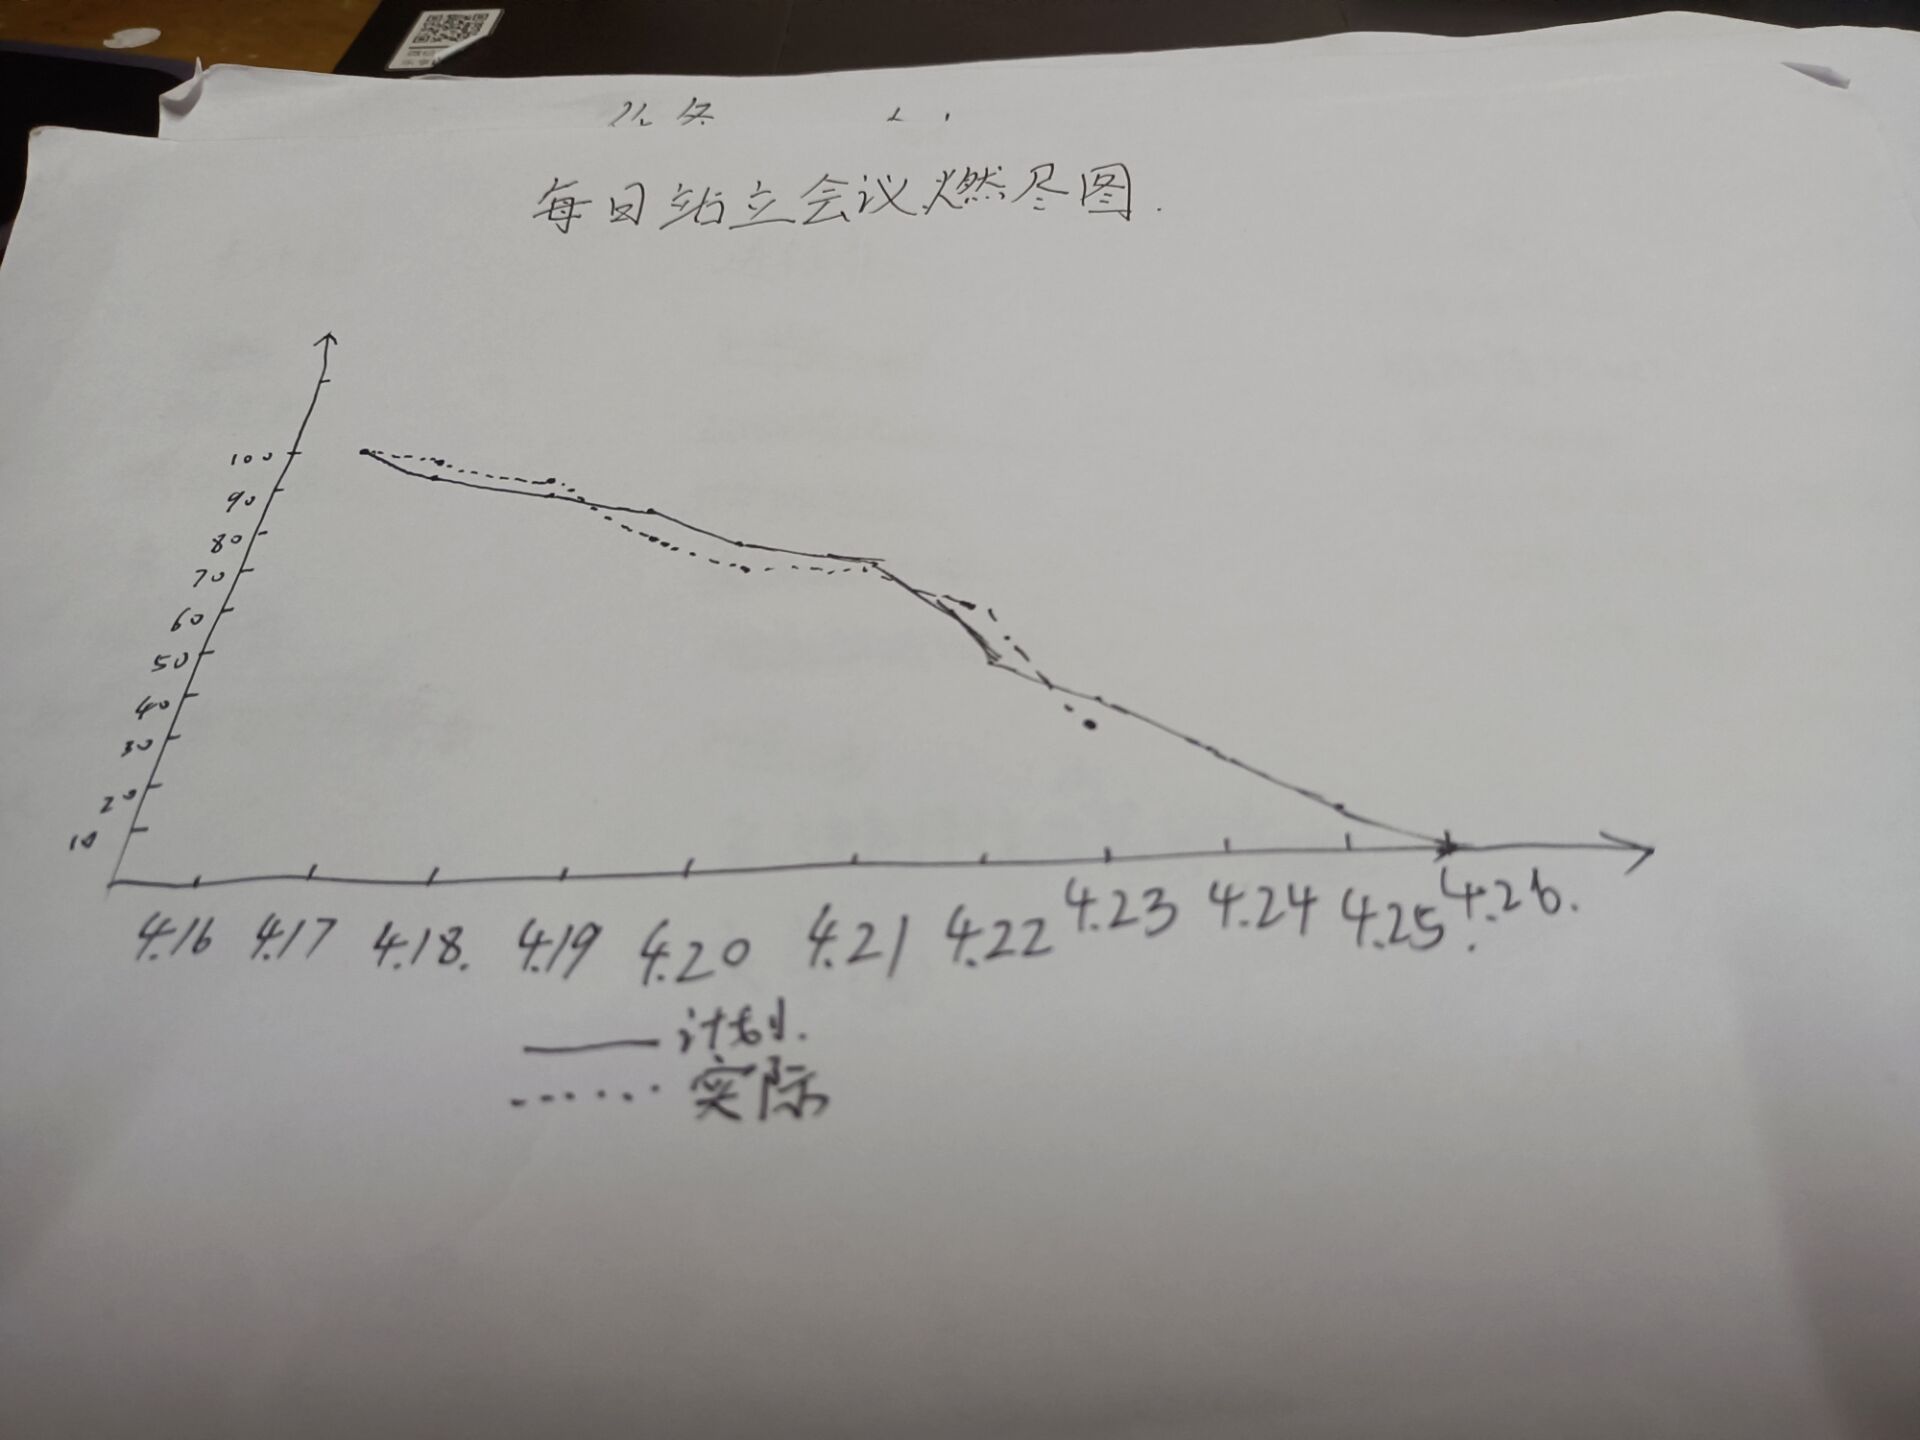 每日站立会议燃尽图.
100
90
80
70
60
50
40
30
20
10
4.16 4.17 4.18. 4.19 4.20 4.21 4.22 4.23 4.24 4.25. 4.26.
计划.
实际